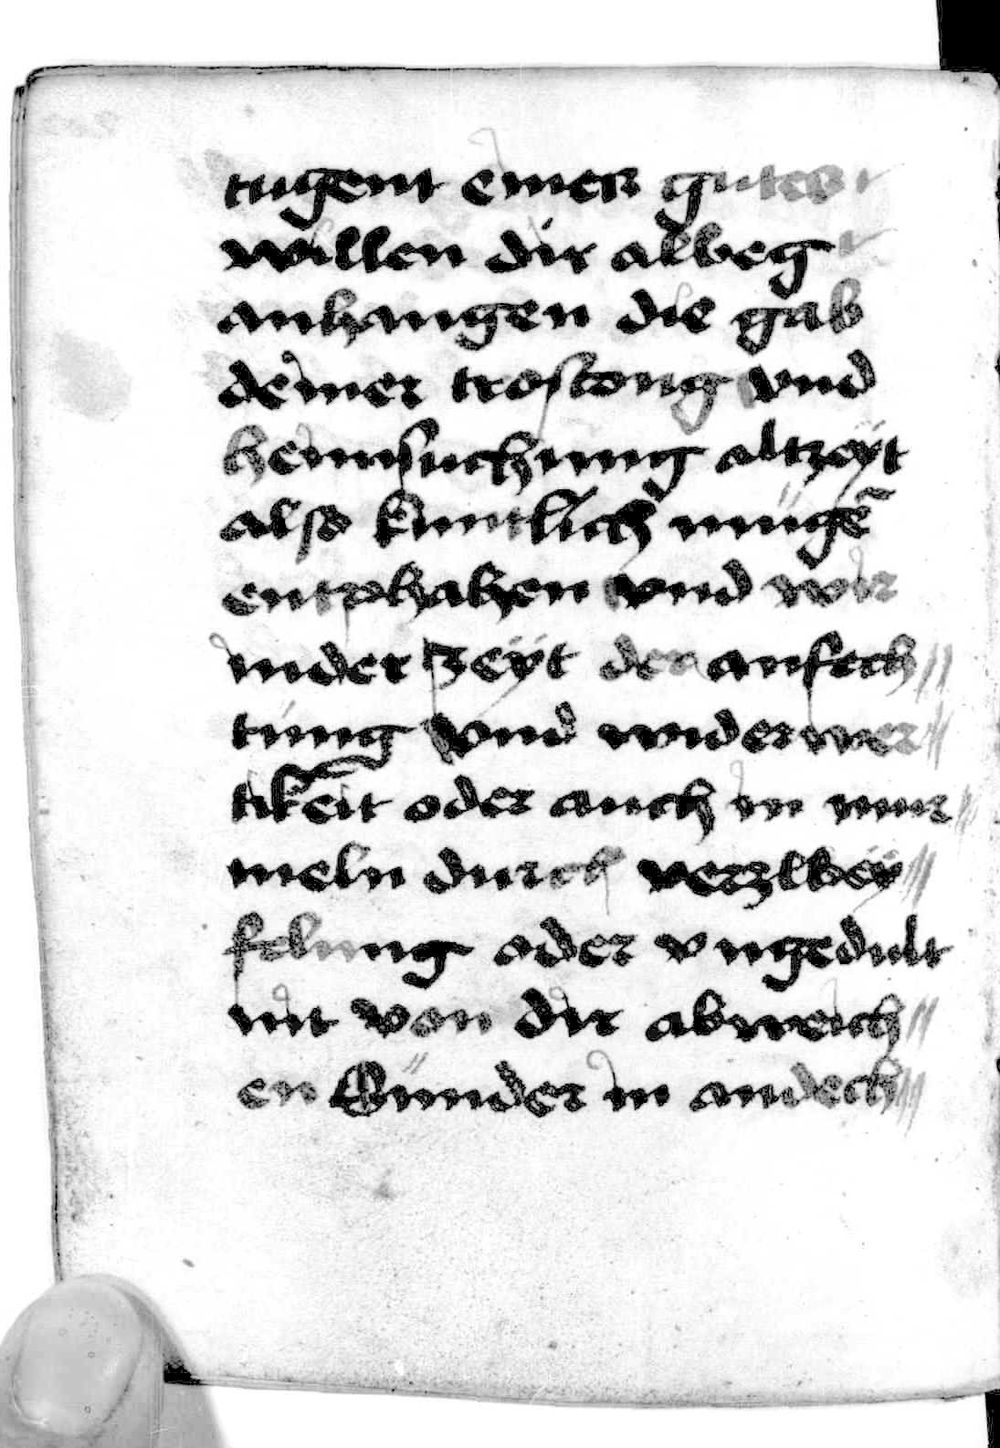 tugent eines gutes
willen dir albeg
anhangen die gab
deiner trostong vnd
heimsuchung altzeÿt
also kuntlich mügē
entphahen vnd wir
inder zeÿt der anfech//
tung vnd widerwer//
tikeit oder auch in mur//
meln durch verzlbeÿ//
felung oder vngedult
nit von dir abweich//
en Sünder in andech//